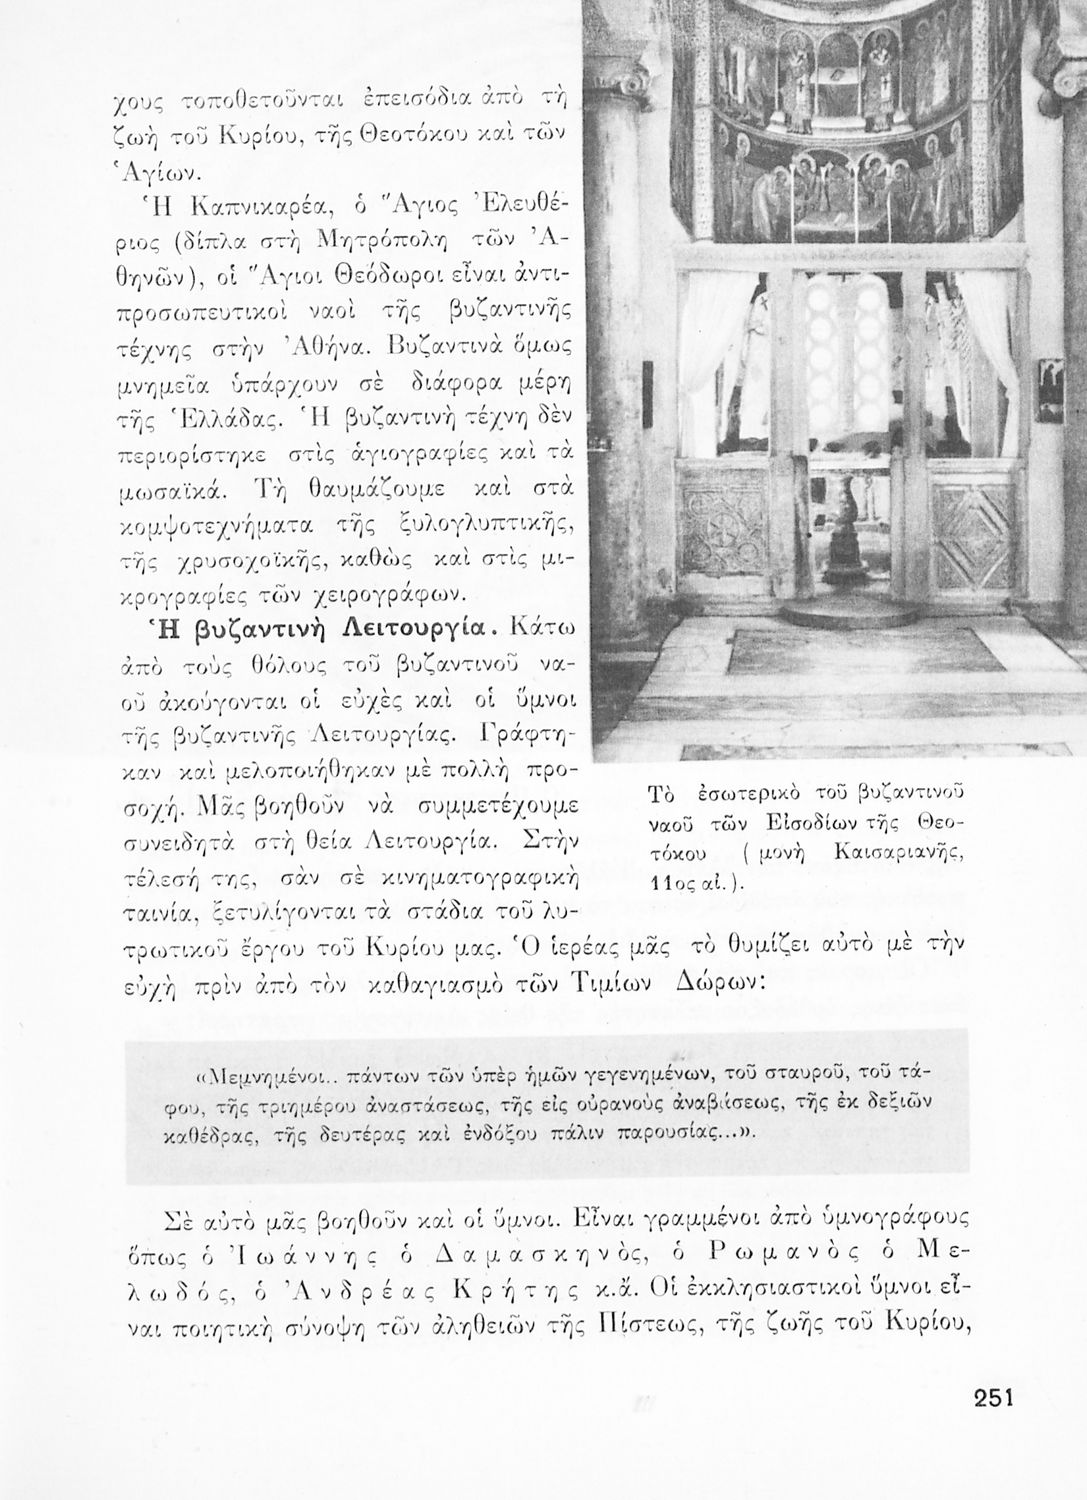 χους τοποθετοῦνται ἐπεισόδια ἀπὸ τὴ
ζωὴ τοῦ Κυρίου, τῆς Θεοτόκου καὶ τῶν
Ἁγίων.
Ἡ Καπνικαρέα, ὁ Ἅγιος Ἐλευθέ-
ριος (δίπλα στὴ Μητρόπολη τῶν Ἀ-
θηνῶν), οἱ Ἅγιοι Θεόδωροι εἶναι ἀντι-
προσωπευτικοὶ ναοὶ τῆς βυζαντινῆς
τέχνης στὴν Ἀθήνα. Βυζαντινὰ ὅμως
μνημεῖα ὑπάρχουν σὲ διάφορα μέρη
τῆς Ἑλλάδας. Ἡ βυζαντινὴ τέχνη δὲν
περιορίστηκε στὶς ἁγιογραφίες καὶ τὰ
μωσαϊκά. Τὴ θαυμάζουμε καὶ στὰ
κομψοτεχνήματα τῆς ξυλογλυπτικῆς,
τῆς χρυσοχοϊκῆς, καθὼς καὶ στὶς μι-
κρογραφίες τῶν χειρογράφων.
Ἡ βυζαντινὴ Λειτουργία. Κάτω
ἀπὸ τοὺς θόλους τοῦ βυζαντινοῦ να-
οῦ ἀκούγονται οἱ εὐχὲς καὶ οἱ ὕμνοι
τῆς βυζαντινῆς Λειτουργίας. Γράφτη-
καν καὶ μελοποιήθηκαν μὲ πολλὴ προ-
σοχή. Μᾶς βοηθοῦν νὰ συμμετέχουμε
συνειδητὰ στὴ θεία Λειτουργία. Στὴν
τέλεσή της, σὰν σὲ κινηματογραφικὴ
ταινία, ξετυλίγονται τὰ στάδια τοῦ λυ-
τρωτικοῦ ἔργου τοῦ Κυρίου μας. Ὁ ἱερέας μᾶς τὸ θυμίζει αὐτὸ μὲ τὴν
εὐχὴ πρὶν ἀπὸ τὸν καθαγιασμὸ τῶν Τιμίων Δώρων:
Τὸ ἐσωτερικὸ τοῦ βυζαντινοῦ
ναοῦ τῶν Εἰσοδίων τῆς Θεο-
τόκου (μονὴ Καισαριανῆς,
11ος αἰ.).
«Μεμνημένοι.. πάντων τῶν ὑπὲρ ἡμῶν γεγενημένων, τοῦ σταυροῦ, τοῦ τά-
φου, τῆς τριημέρου ἀναστάσεως, τῆς εἰς οὐρανοὺς ἀναβάσεως, τῆς ἐκ δεξιῶν
καθέδρας, τῆς δευτέρας καὶ ἐνδόξου πάλιν παρουσίας...».
Σὲ αὐτὸ μᾶς βοηθοῦν καὶ οἱ ὕμνοι. Εἶναι γραμμένοι ἀπὸ ὑμνογράφους
ὅπως ὁ Ἰωάννης ὁ Δαμασκηνὸς, ὁ Ρωμανὸς ὁ Με-
λωδός, ὁ Ἀνδρέας Κρήτης κ.ἄ. Οἱ ἐκκλησιαστικοὶ ὕμνοι εἶ-
ναι ποιητικὴ σύνοψη τῶν ἀληθειῶν τῆς Πίστεως, τῆς ζωῆς τοῦ Κυρίου,
251